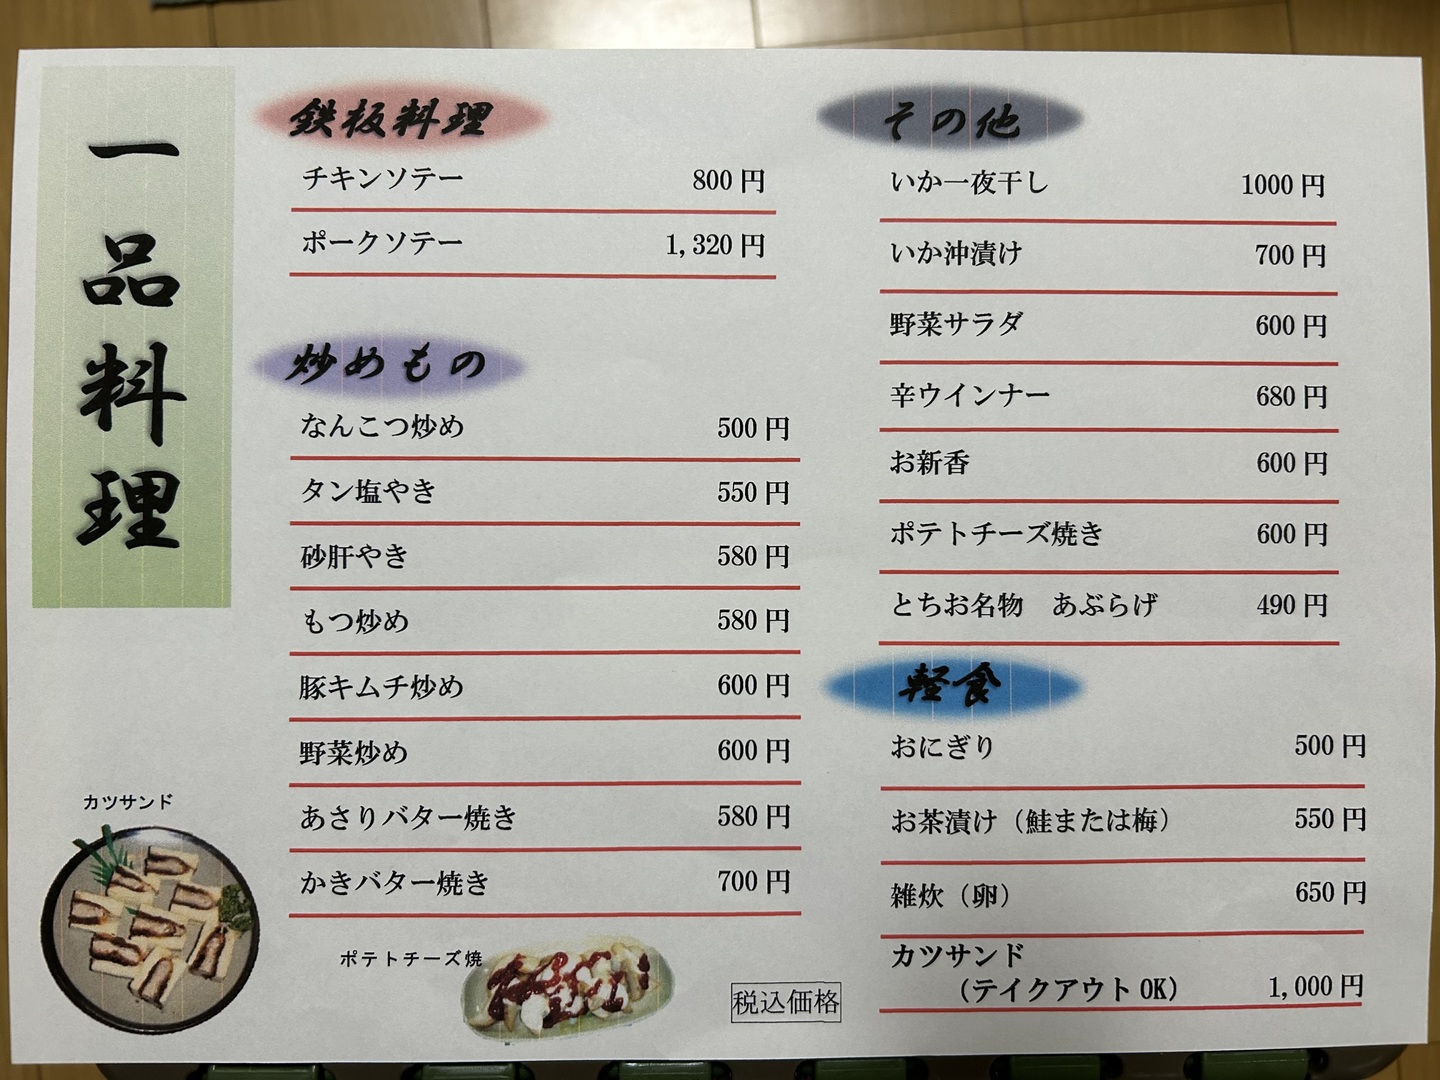 一品料理
鉄板料理
チキンソテー 800円
ポークソテー 1,320円
炒めもの
なんこつ炒め 500円
タン塩やき 550円
砂肝やき 580円
もつ炒め 580円
豚キムチ炒め 600円
野菜炒め 600円
あさりバター焼き 580円
かきバター焼き 700円
その他
いか一夜干し 1000円
いか沖漬け 700円
野菜サラダ 600円
辛ウインナー 680円
お新香 600円
ポテトチーズ焼き 600円
とちお名物 あぶらげ 490円
軽食
おにぎり 500円
お茶漬け（鮭または梅） 550円
雑炊（卵） 650円
カツサンド
（テイクアウトOK） 1,000円
カツサンド
ポテトチーズ焼
税込価格